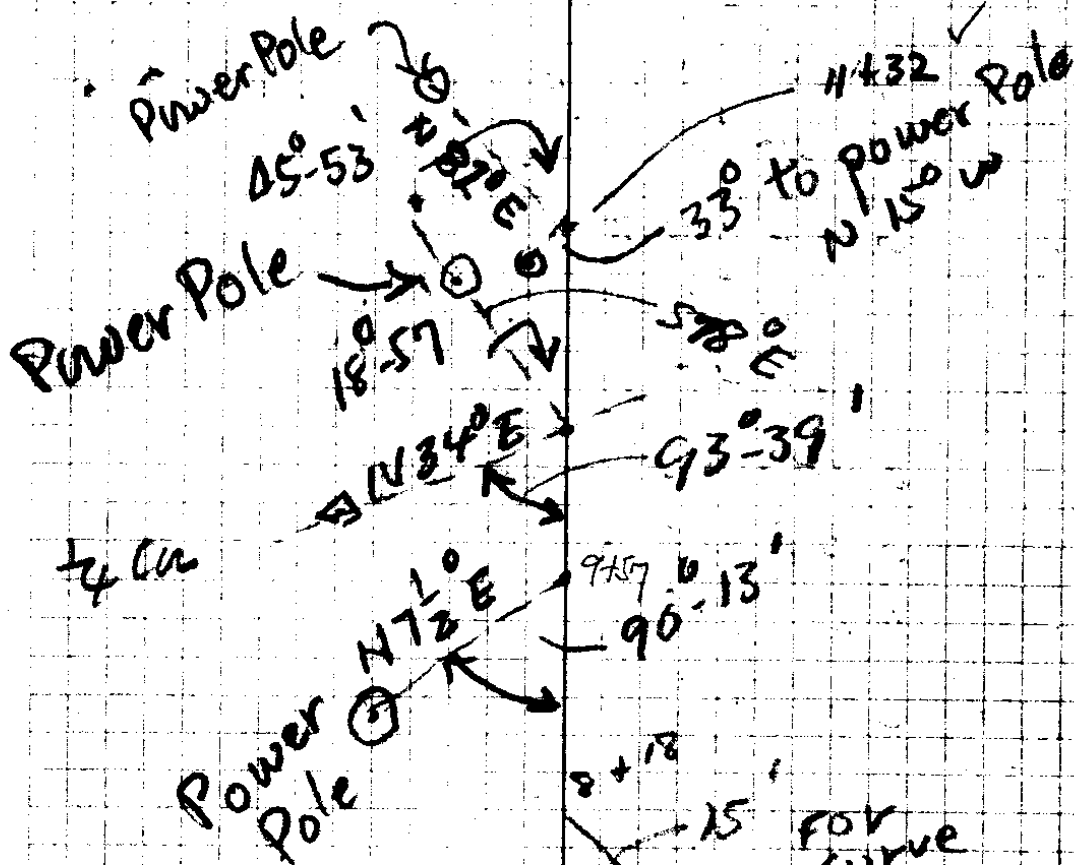 Power Pole
11+32
45°-53'
N 82° E
33° to power Pole
N 15° W
Power Pole
18°-57
S78° E
N 34° E
93°-39'
1/4 Cor
9+57
90°-13'
N 7 1/2° E
Power
Pole
8+18
15'
For
curve